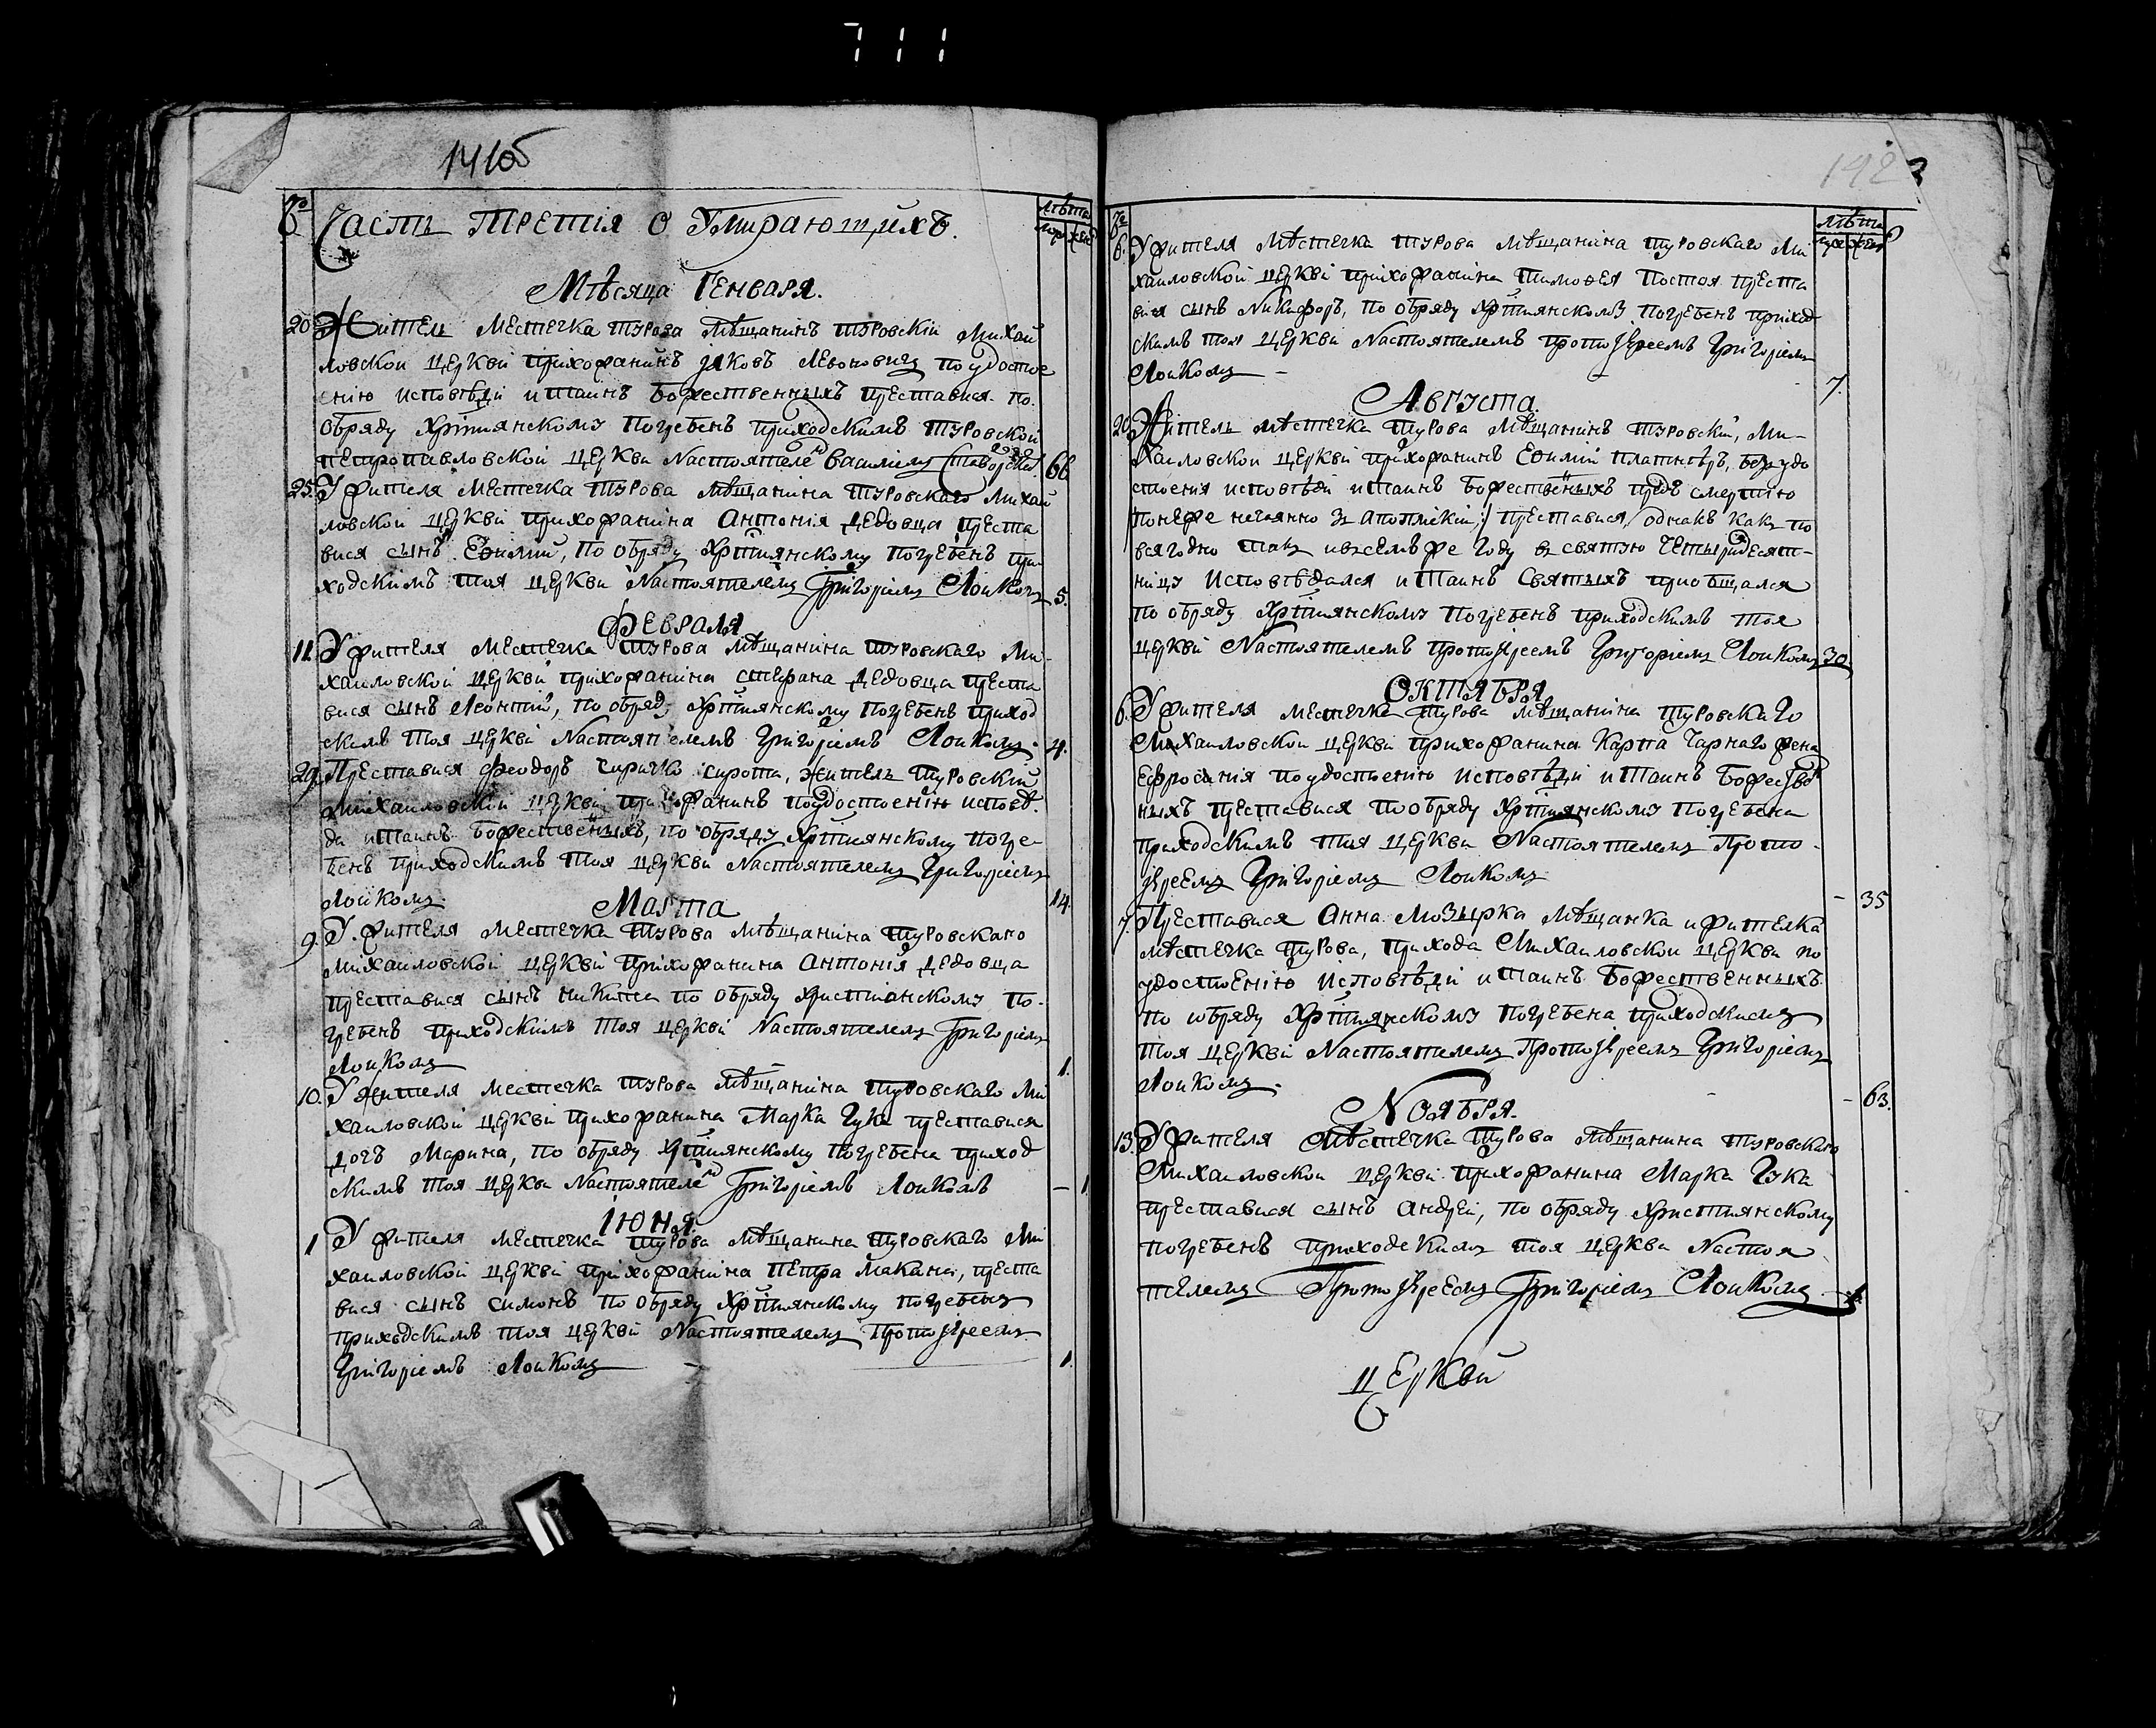 711
141об
Часть третія о Умирающихъ.
лѣта
муж жен
Мѣсяца Генваря.
20 Житель местечка турова мѣщанинъ туровскіи михаи
ловскои церкві прихожанинъ Яковъ Леоновичъ по удостое
енію исповѣди и таинъ божественныхъ преставися по
обряду хртиянскому погребенъ приходскимъ туровской
петропавловской церкви настоятелем Василіемъ 66
25 У жителя местечка турова мѣщанина туровскаго михаи
ловской церкви прихожанина Антонія Дедовца преста
вися сынъ Еѳимий, по обряду хртиянскому погребенъ при
ходскимъ тоя церкви настоятелемъ Григоріемъ Лоикомъ 5.
Февраля
11. У жителя местечка турова мѣщанина туровскаго ми
хаиловской церкви прихожанина стефана Дедовца преста
вися сынъ Леонтий, по обряду хртиянскому погребенъ приход
скимъ тоя церкві настоятелемъ Григоріемъ Лоикомъ. 4.
29. Преставися феодоръ сирота, житель туровскій
михаиловскій церкви прихожанинъ по удостоенію исповѣ
ди и таинъ божественныхъ, по обряду хртиянскому погре
бенъ приходскимъ тоя церкви настоятелемъ Григоріемъ
Лоикомъ. 14.
Марта
9. У жителя местечка турова мѣщанина туровскаго
михаиловской церкві прихожанина Антонія Дедовца
преставися сынъ никита по обряду христіанскому по
гребенъ приходскимъ тоя церкві настоятелемъ Григоріемъ
Лоикомъ 1.
10. У жителя местечка турова мѣщанина туровскаго ми
хаиловской церкві прихожанина Марка Гука преставися
дочъ Марина, по обряду хртиянскому погребена приход
скимъ тоя церкви настоятелем Григоріемъ Лоикомъ – 1
Іюня.
1 У жителя местечка турова мѣщанина туровскаго ми
хаиловской церкві прихожанина петра Макана, преста
вися сынъ симонъ по обряду хртиянскому погребенъ
приходскимъ тоя церкви настоятелемъ протоіереемъ
Григоріемъ Лоикомъ 1.
лѣта
муж жен
6. У жителя мѣстечка турова мѣщанина туровскаго ми
хаиловской церкві прихожанина тимоѳея Постоя преста
вися сынъ Никифоръ, по обряду хртиянскому погребенъ приход
скимъ тоя церкви настоятелемъ протоіереемъ Григоріемъ
Лоикомъ – 7.
Августа.
20 Житель мѣстечка турова мѣщанинъ туровскій, ми-
хаиловской церкві прихожанинъ Еѳимій безъ удо
стоенія исповѣди и таинъ божественныхъ предъ смертію
понеже нечаянно преставися, однакъ какъ по
всягодно такъ и въ семъ же году въ святую четыридесят-
ницу исповѣдался и таинъ святыхъ приобщался
по обряду хртиянскому погребенъ приходскимъ тоя
церкві настоятелемъ протоіереемъ Григоріемъ Лоикомъ 30
Октября
6. У жителя местечка турова мѣщанина туровскаго
Михаиловской церкви прихожанина Карпа Чарнаго жена
Ефросинія по удостоенію исповѣди и таинъ божествен
ныхъ преставися по обряду хртиянскому погребена
приходскимъ тоя церкви настоятелемъ прото
іереемъ Григоріемъ Лоикомъ – 35
7. Преставися Анна Мозырка мѣщанка и жителка
мѣстечка турова, прихода Михаиловской церкви по
удостоенію исповѣди и таинъ божественныхъ
по обряду хртиянскому погребена приходскимъ
тоя церкві настоятелемъ протоіереемъ Григоріемъ
Лоикомъ. – 63.
Ноября.
13. У жителя мѣстечка турова мѣщанина туровскаго
Михаиловской церкви прихожанина Марка Гука
преставися сынъ Андрей, по обряду християнскому
погребенъ приходскимъ тоя церкви настоя
телемъ Протоіереемъ Григоріемъ Лоикомъ
церкви